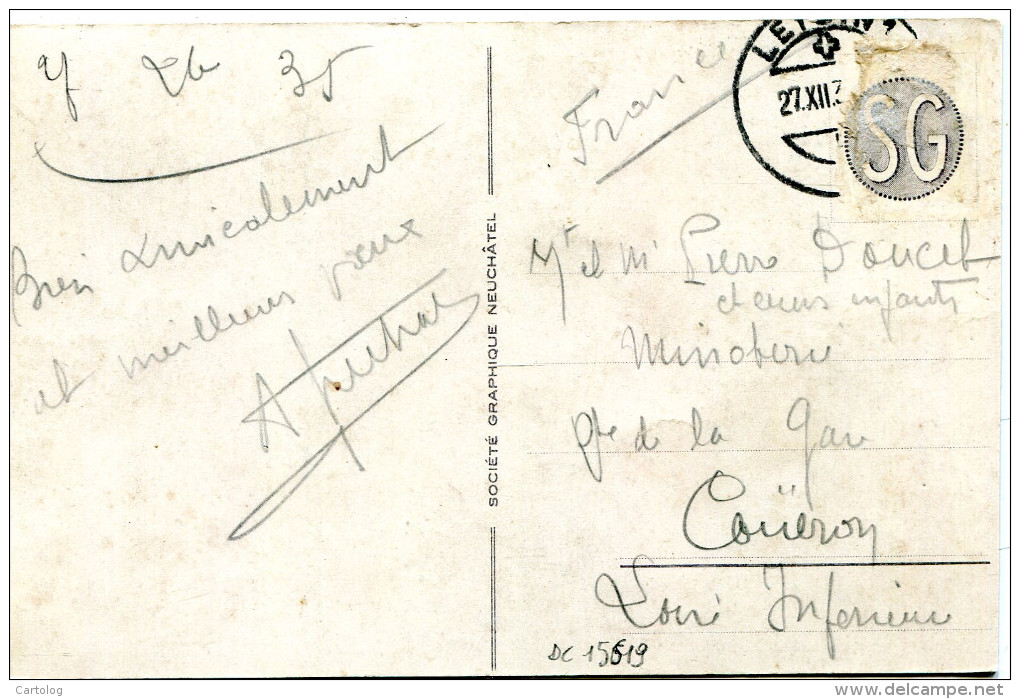 26 35
Bien Amicalement
et meilleurs vœux
SOCIÉTÉ GRAPHIQUE NEUCHÂTEL
France
LEYSIN
27.XII.3
SG
Mr et Me Pierre Doucet
et leurs enfants
Minoterie
Pte de la Gare
Couëron
Loire Inferieure
DC 15619
Cartolog
www.delcampe.net